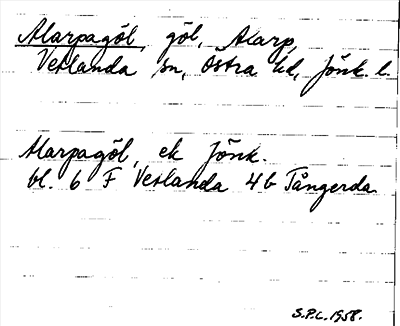 Alarpagöl, göl, Alarp,
Vetlanda sn, Östra hd, Jönk. l.
Alarpagöl, ek Jönk.
bl. 6 F Vetlanda 4b Tångerda
S.P.L. 1958.